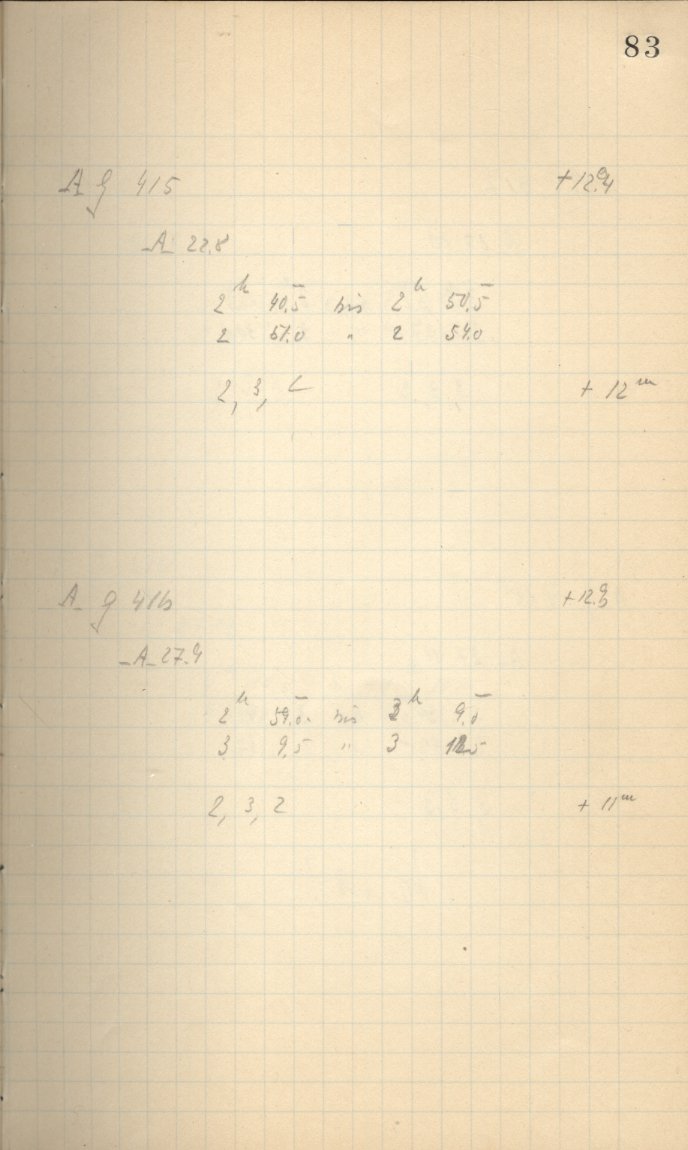 83
A g 415 +12.4
A 22.8
2h 40.5 bis 2h 50.5
2 51.0 " 2 54.0
2, 3, 2 + 12m
A g 416 +12.3
A 27.9
2h 59.0 bis 3h 9.0
3 9.5 " 3 12.5
2, 3, 2 + 11m